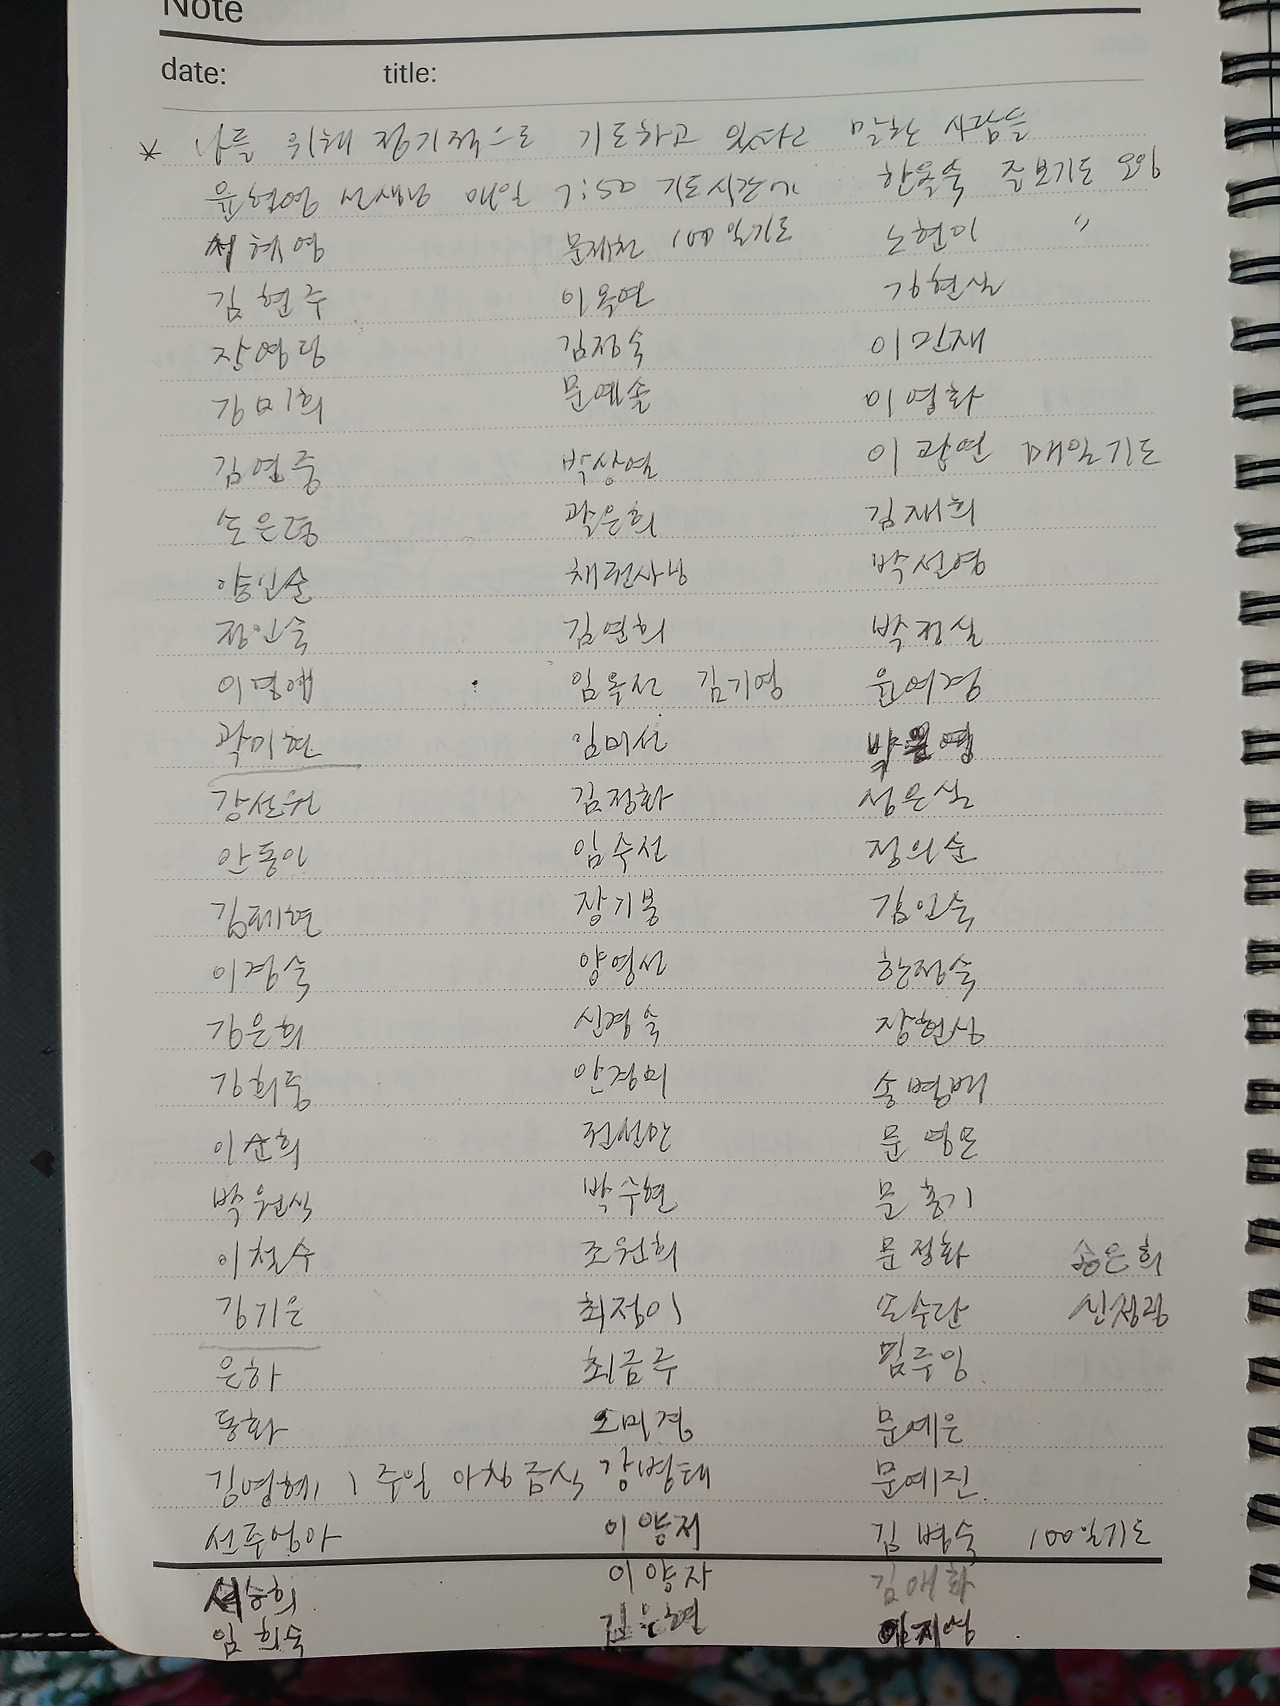 Note
date: title:
* 나를 위해 정기적으로 기도하고 있다고 말한 사람들
윤현영 선생님 매일 7:50 기도시간에 한옥숙 중보기도 요원
서혜영 문재천 100일기도 노현미 〃
김현주 이옥연 김현실
장영덕 김정숙 이민재
김미희 문예솔 이영화
김연중 박상열 이광연 매일기도
곽은희 김재희
양인순 채권사님 박선영
정인숙 김연희 박정실
이명애 임옥선 김기영 윤여경
곽미현 임미선
강선원 김정화 성은실
안동인 임수선 정의순
김태현 장기봉 김인숙
이경숙 양영선 한정숙
김은희 신경숙 장현상
김희동 안경미 송병배
이순희 전선안 문영모
박원식 박수현 문홍기
이철수 조원희 문정화 송은희
김기은 최정이 신정광
은하 최금주 임주영
동화 오미경 문예은
김명혜 1주일 아침금식 강병태 문예진
선주엉아 김병숙 100일기도
이양자 김애화
임희숙 김은현 이지영